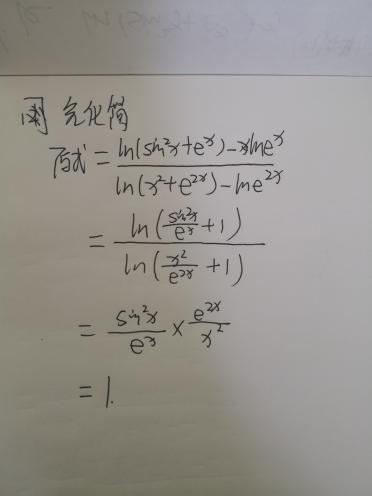 先化简
原式 = (ln(sin²x+e^x)-xlne^x)/(ln(x²+e^{2x})-lne^{2x})
= ln(sin²x/e^x +1)/ln(x²/e^{2x} +1)
= sin²x/e^x × e^{2x}/x²
= 1.